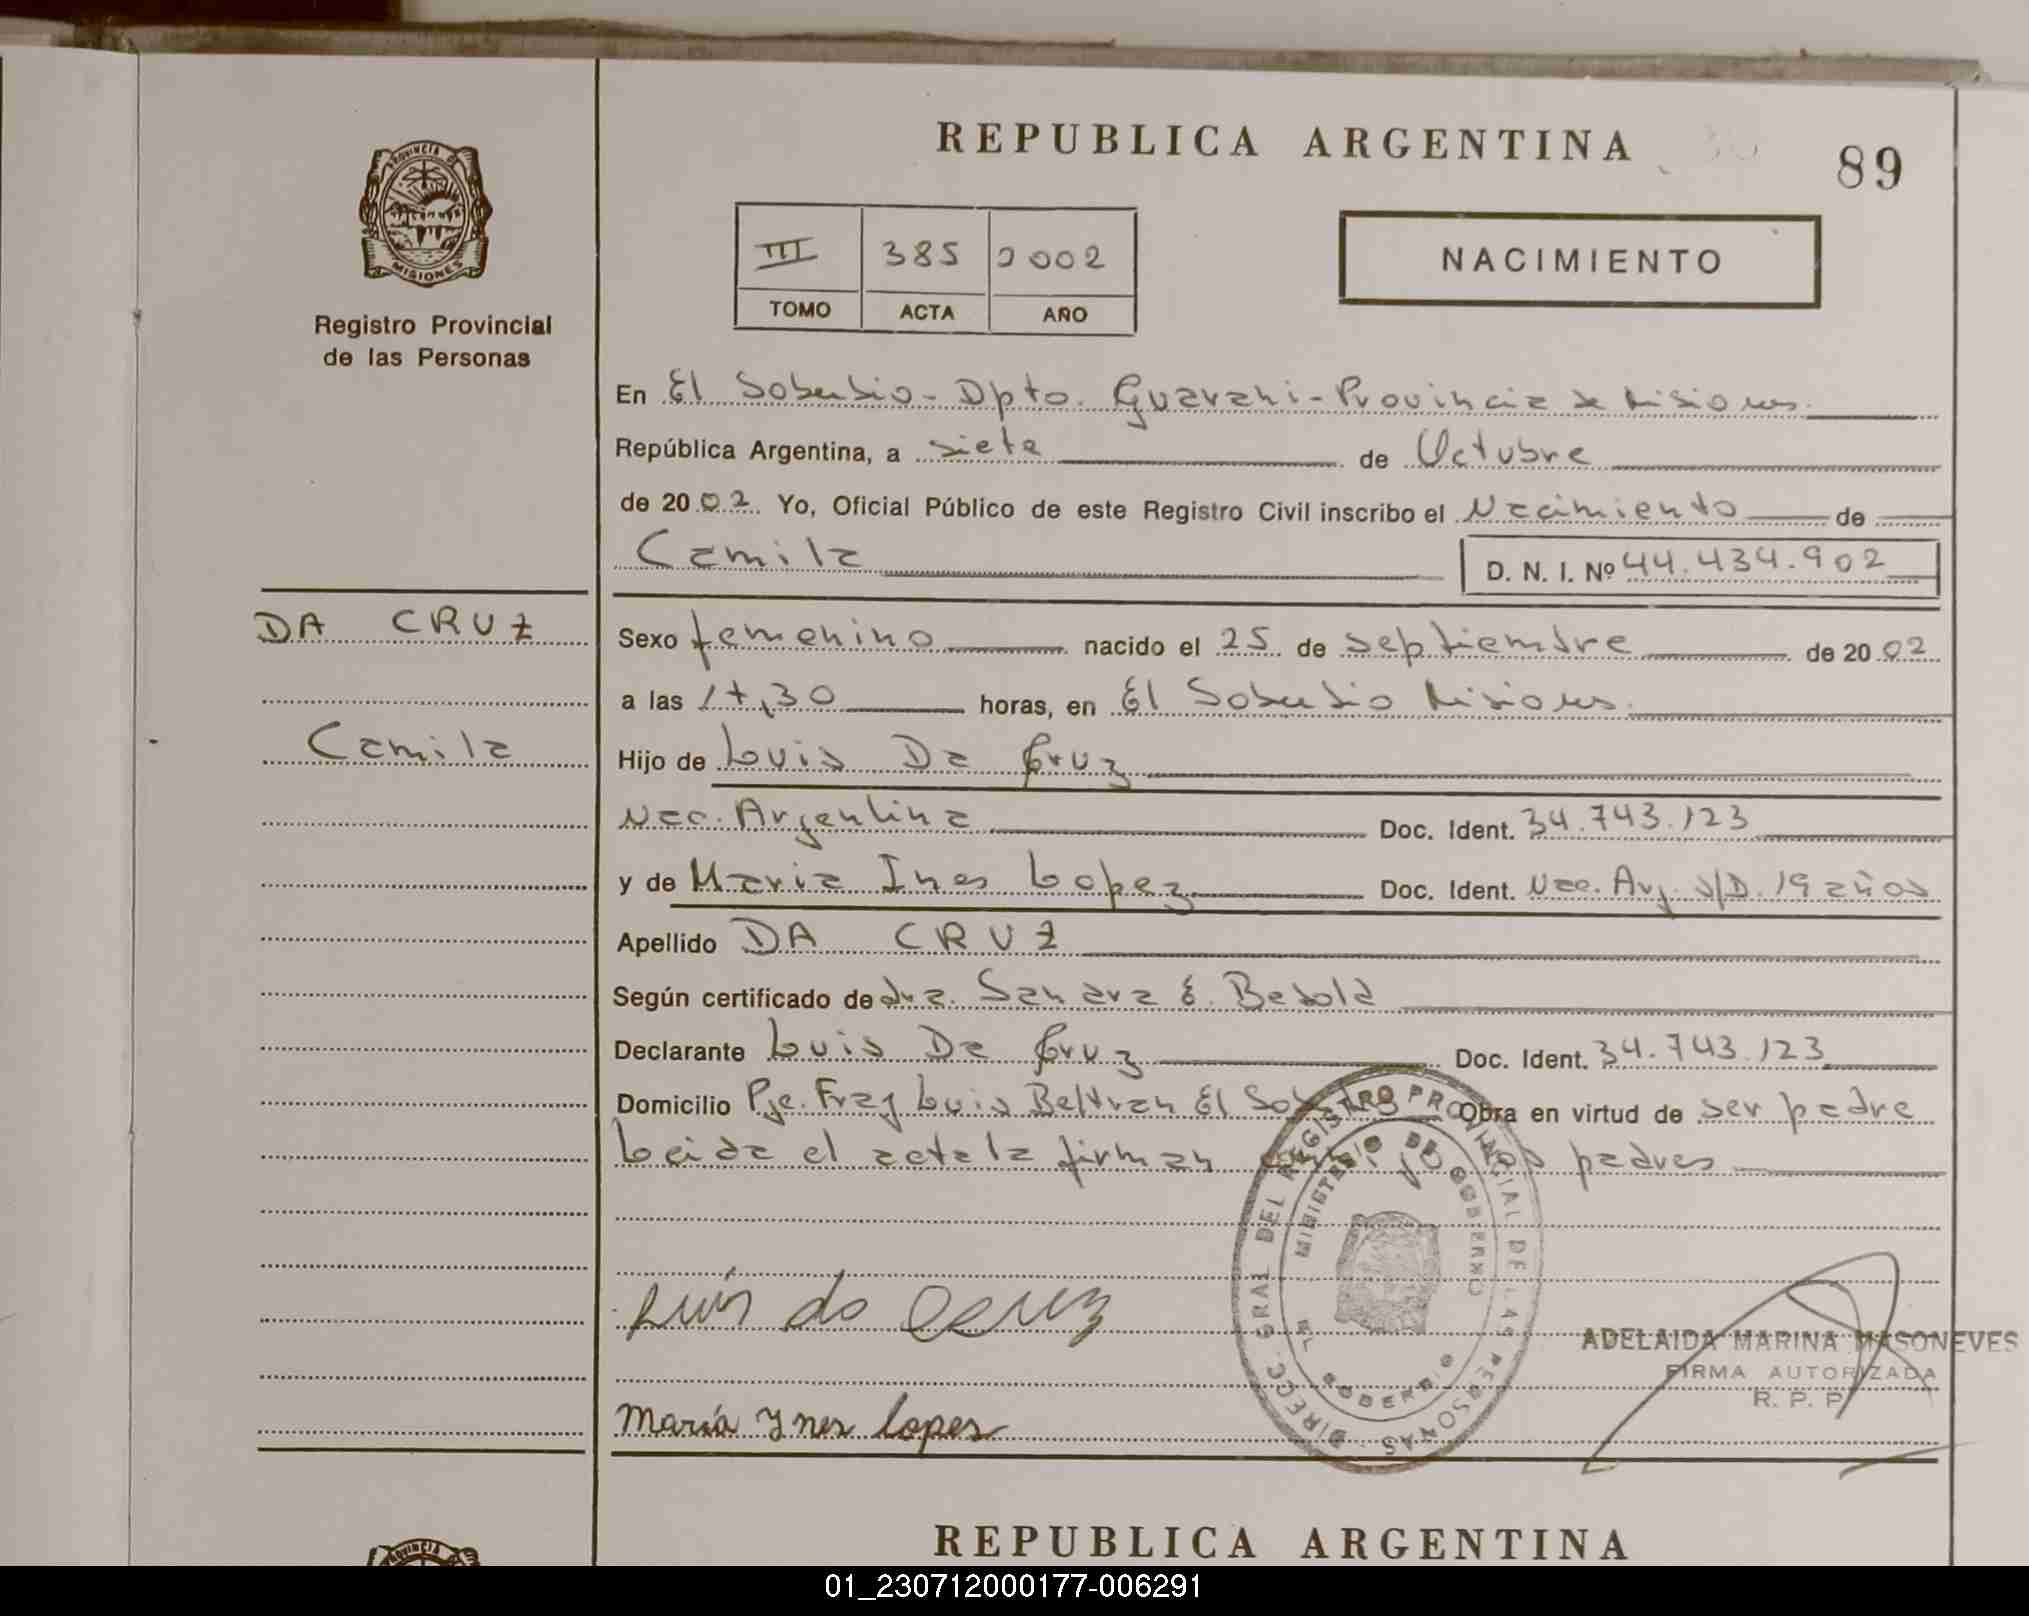 REPUBLICA ARGENTINA
89
PROVINCIA DE
MISIONES
Registro Provincial
de las Personas
III 385 2002
TOMO ACTA AÑO
NACIMIENTO
En El Soberbio - Dpto. Guarani - Provincia de Misiones.
República Argentina, a siete de Octubre
de 2002. Yo, Oficial Público de este Registro Civil inscribo el Nacimiento de
Camila D. N. I. Nº 44.434.902
DA CRUZ
Camila
Sexo femenino nacido el 25 de septiembre de 2002
a las 17,30 horas, en El Soberbio Misiones.
Hijo de Luis Da Cruz
Nac. Argentina Doc. Ident. 34.743.123
y de Maria Ines Lopez Doc. Ident. Nac. Arg. s/D. 19 años
Apellido DA CRUZ
Según certificado de dra. Sandra E.
Declarante Luis Da Cruz Doc. Ident. 34.743.123
Domicilio Pje. Fray Luis Beltran El Obra en virtud de ser padre
Leida el acta la firman padres
DIRECC. GRAL DEL REGISTRO PROVINCIAL DE LAS PERSONAS
MINISTERIO DE GOBIERNO
EL SOBERBIO
Luis da Cruz
ADELAIDA MARINA MASONEVES
FIRMA AUTORIZADA
R. P. P
María Ynes Lopes
REPUBLICA ARGENTINA
PROVINCIA
01_230712000177-006291